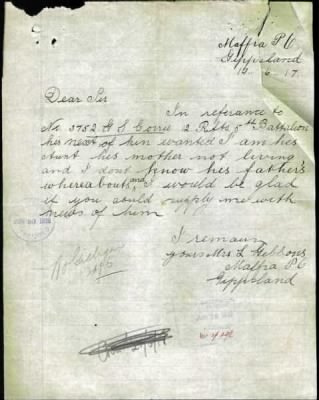 Maffra P.O
Gippsland
12. 6. 17
Dear Sir
In referance to
No 3752 G S 2 Rfts 5th Battalion
his next of kin wanted I am his
Aunt his mother not living
and I dont know his father's
whereabouts, and I would be glad
if you could supply me with
news of him
I remain
yours Mrs L Gibbons
Maffra P.O
Gippsland